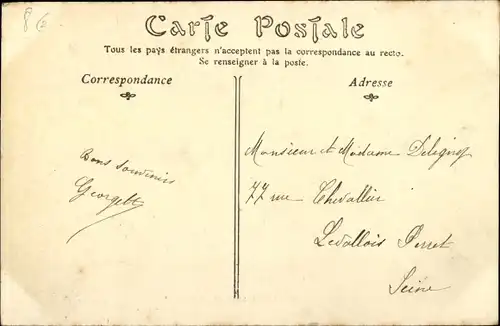 86
Carte Postale
Tous les pays étrangers n'acceptent pas la correspondance au recto.
Se renseigner à la poste.
Correspondance
Adresse
Bons souvenirs
Georgette
Monsieur et Madame Deligny
77 rue Chevallier
Levallois Perret
Seine